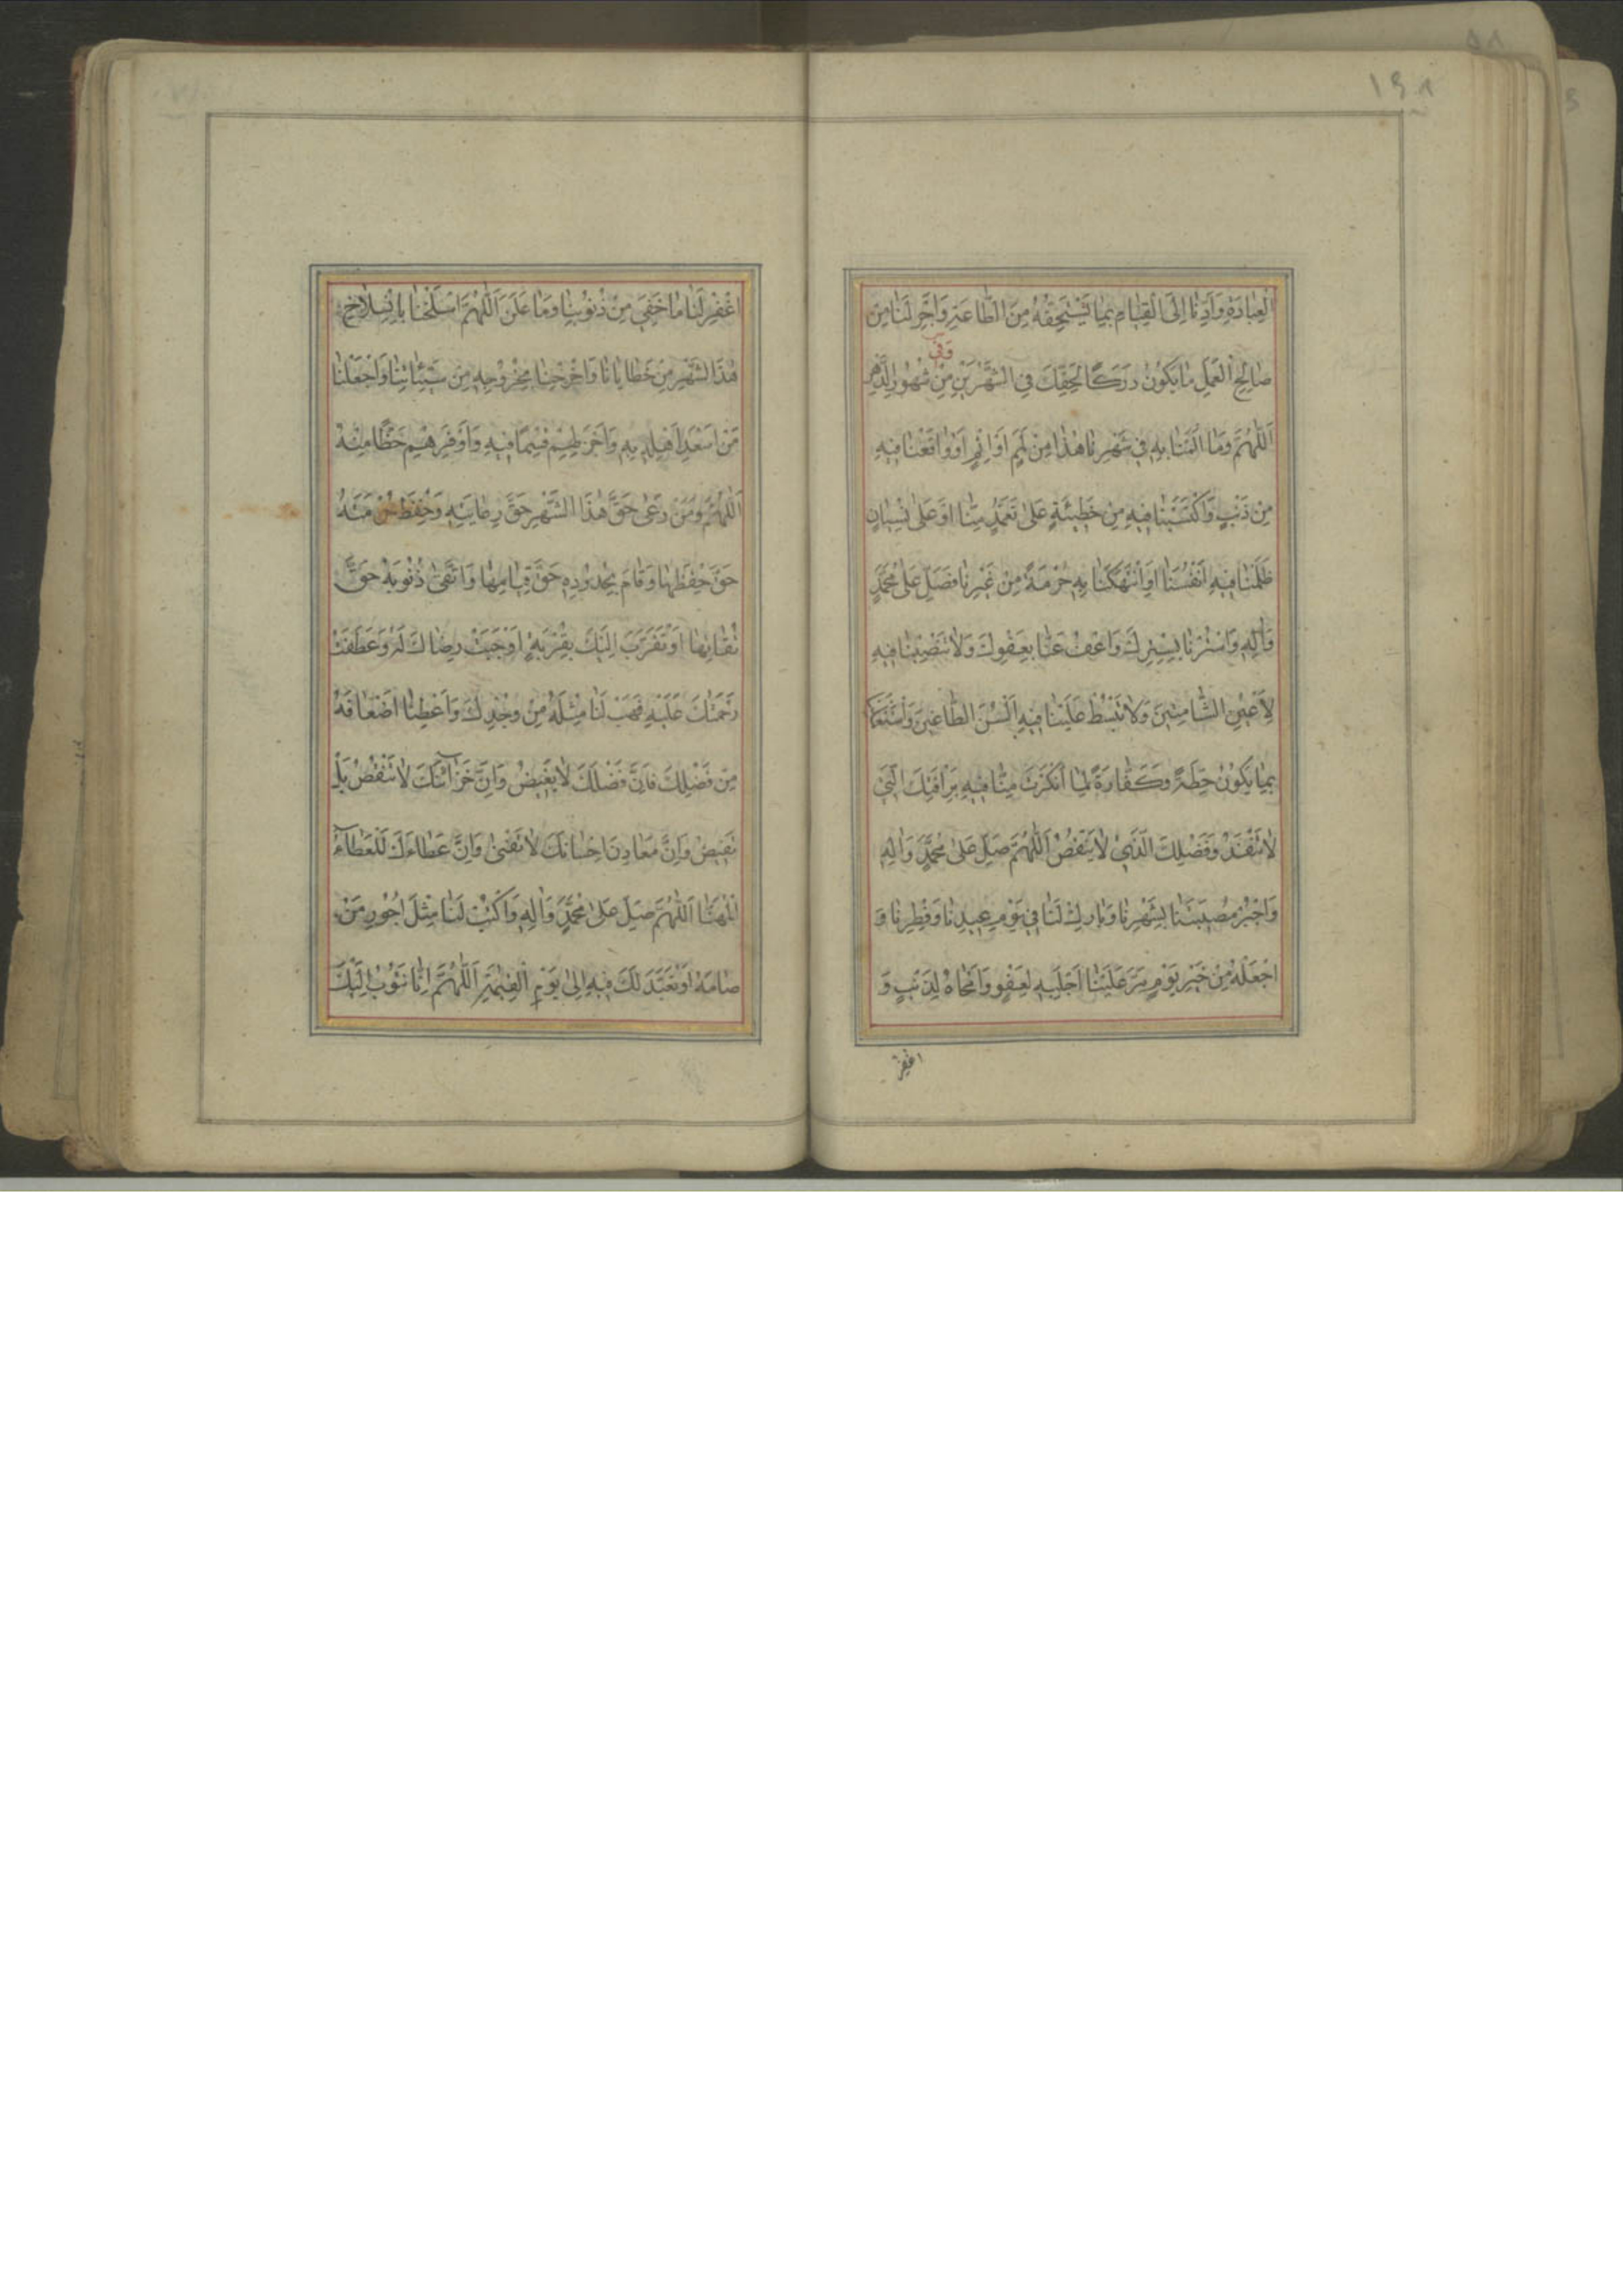 ١٩٨
الْعِبَادَةِ وَاَدِّنَا اِلَى الْقِيَامِ بِمَا يَسْتَحِقُّهُ مِنَ الطَّاعَةِ وَاَجْرِ لَنَا مِنْ
وَفِي
صَالِحِ الْعَمَلِ مَا يَكُونُ دَرَكًا لِحَقِّكَ فِي الشَّهْرَيْنِ مِنْ شُهُورِ الدَّهْرِ
اَللّٰهُمَّ وَمَا اَلْمَمْنَا بِهِ فِي شَهْرِنَا هٰذَا مِنْ لَمَمٍ اَوْ اِثْمٍ اَوْ وَاقَعْنَا فِيهِ
مِنْ ذَنْبٍ وَاكْتَسَبْنَا فِيهِ مِنْ خَطِيئَةٍ عَلٰى تَعَمُّدٍ مِنَّا اَوْ عَلٰى نِسْيَانٍ
ظَلَمْنَا فِيهِ اَنْفُسَنَا اَوِ انْتَهَكْنَا بِهِ حُرْمَةً مِنْ غَيْرِنَا فَصَلِّ عَلٰى مُحَمَّدٍ
وَاٰلِهِ وَاسْتُرْنَا بِسِتْرِكَ وَاعْفُ عَنَّا بِعَفْوِكَ وَلَا تَنْصِبْنَا فِيهِ
لِاَعْيُنِ الشَّامِتِينَ وَلَا تَبْسُطْ عَلَيْنَا فِيهِ اَلْسُنَ الطَّاغِينَ وَاسْتَعْمِلْنَا
بِمَا يَكُونُ حِطَّةً وَكَفَّارَةً لِمَا اَنْكَرْتَ مِنَّا فِيهِ بِرَأْفَتِكَ الَّتِي
لَا تَنْفَدُ وَفَضْلِكَ الَّذِي لَا يَنْقُصُ اَللّٰهُمَّ صَلِّ عَلٰى مُحَمَّدٍ وَاٰلِهِ
وَاجْبُرْ مُصِيبَتَنَا بِشَهْرِنَا وَبَارِكْ لَنَا فِي يَوْمِ عِيدِنَا وَفِطْرِنَا وَ
اجْعَلْهُ مِنْ خَيْرِ يَوْمٍ مَرَّ عَلَيْنَا اَجْلَبِهِ لِعَفْوٍ وَاَمْحَاهُ لِذَنْبٍ وَ
اغْفِرْ
اغْفِرْ لَنَا مَا خَفِيَ مِنْ ذُنُوبِنَا وَمَا عَلَنَ اَللّٰهُمَّ اسْلَخْنَا بِانْسِلَاخِ
هٰذَا الشَّهْرِ مِنْ خَطَايَانَا وَاَخْرِجْنَا بِخُرُوجِهِ مِنْ سَيِّئَاتِنَا وَاجْعَلْنَا
مِنْ اَسْعَدِ اَهْلِهِ بِهِ وَاَجْزَلِهِمْ قِسْمًا فِيهِ وَاَوْفَرِهِمْ حَظًّا مِنْهُ
اَللّٰهُمَّ وَمَنْ رَعٰى حَقَّ هٰذَا الشَّهْرِ حَقَّ رِعَايَتِهِ وَحَفِظَ حُرْمَتَهُ
حَقَّ حِفْظِهَا وَقَامَ بِحُدُودِهِ حَقَّ قِيَامِهَا وَاتَّقٰى ذُنُوبَهُ حَقَّ
تُقَاتِهَا اَوْ تَقَرَّبَ اِلَيْكَ بِقُرْبَةٍ اَوْجَبَتْ رِضَاكَ لَهُ وَعَطَفَتْ
رَحْمَتَكَ عَلَيْهِ فَهَبْ لَنَا مِثْلَهُ مِنْ وُجْدِكَ وَاَعْطِنَا اَضْعَافَهُ
مِنْ فَضْلِكَ فَاِنَّ فَضْلَكَ لَا يَغِيضُ وَاِنَّ خَزَائِنَكَ لَا تَنْقُصُ بَلْ
تَفِيضُ وَاِنَّ مَعَادِنَ اِحْسَانِكَ لَا تَفْنٰى وَاِنَّ عَطَاءَكَ لَلْعَطَاءُ
الْمُهَنَّا اَللّٰهُمَّ صَلِّ عَلٰى مُحَمَّدٍ وَاٰلِهِ وَاكْتُبْ لَنَا مِثْلَ اُجُورِ مَنْ
صَامَهُ اَوْ تَعَبَّدَ لَكَ فِيهِ اِلٰى يَوْمِ الْقِيٰمَةِ اَللّٰهُمَّ اِنَّا نَتُوبُ اِلَيْكَ